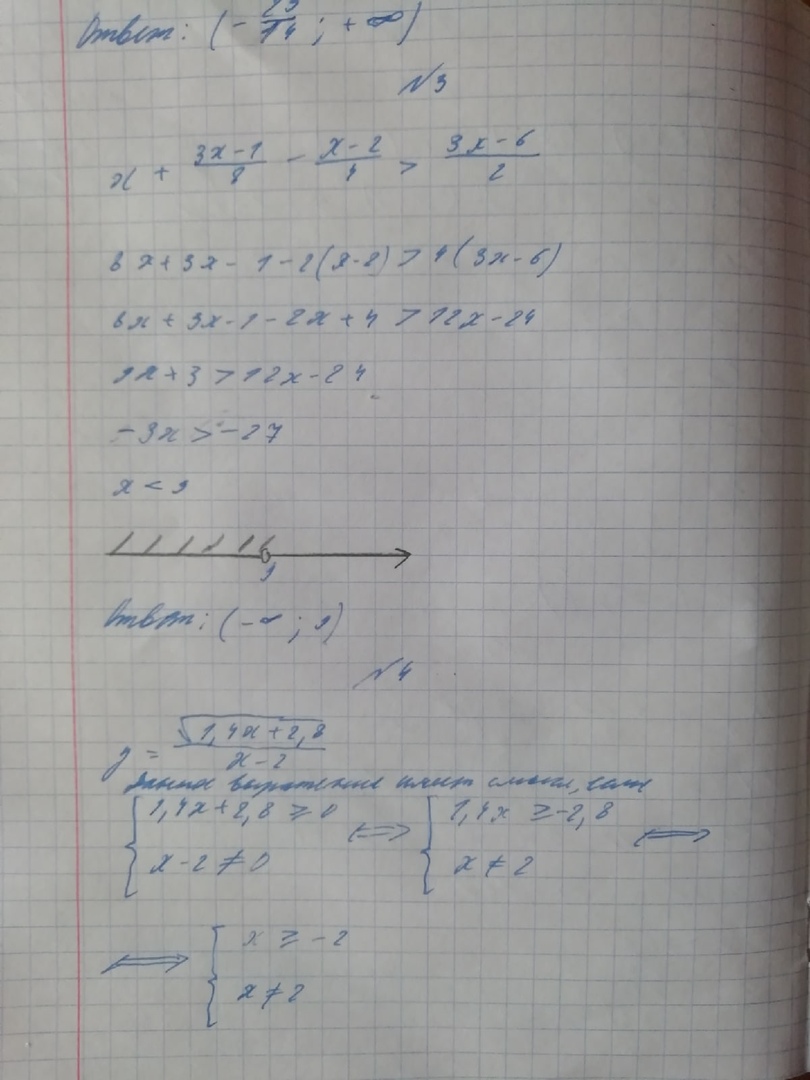 Ответ: (- 23/14 ; + ∞)
№3
x + (3x - 1)/8 - (x - 2)/4 > (3x - 6)/2
8x + 3x - 1 - 2(x - 2) > 4(3x - 6)
8x + 3x - 1 - 2x + 4 > 12x - 24
9x + 3 > 12x - 24
-3x > -27
x < 9
9
Ответ: (-∞ ; 9)
№4
y = √(1,4x + 2,8)/(x - 2)
данное выражение имеет смысл, если
{ 1,4x + 2,8 ≥ 0 ⟺ { 1,4x ≥ -2,8 ⟺
x - 2 ≠ 0 x ≠ 2
⟺ { x ≥ -2
x ≠ 2